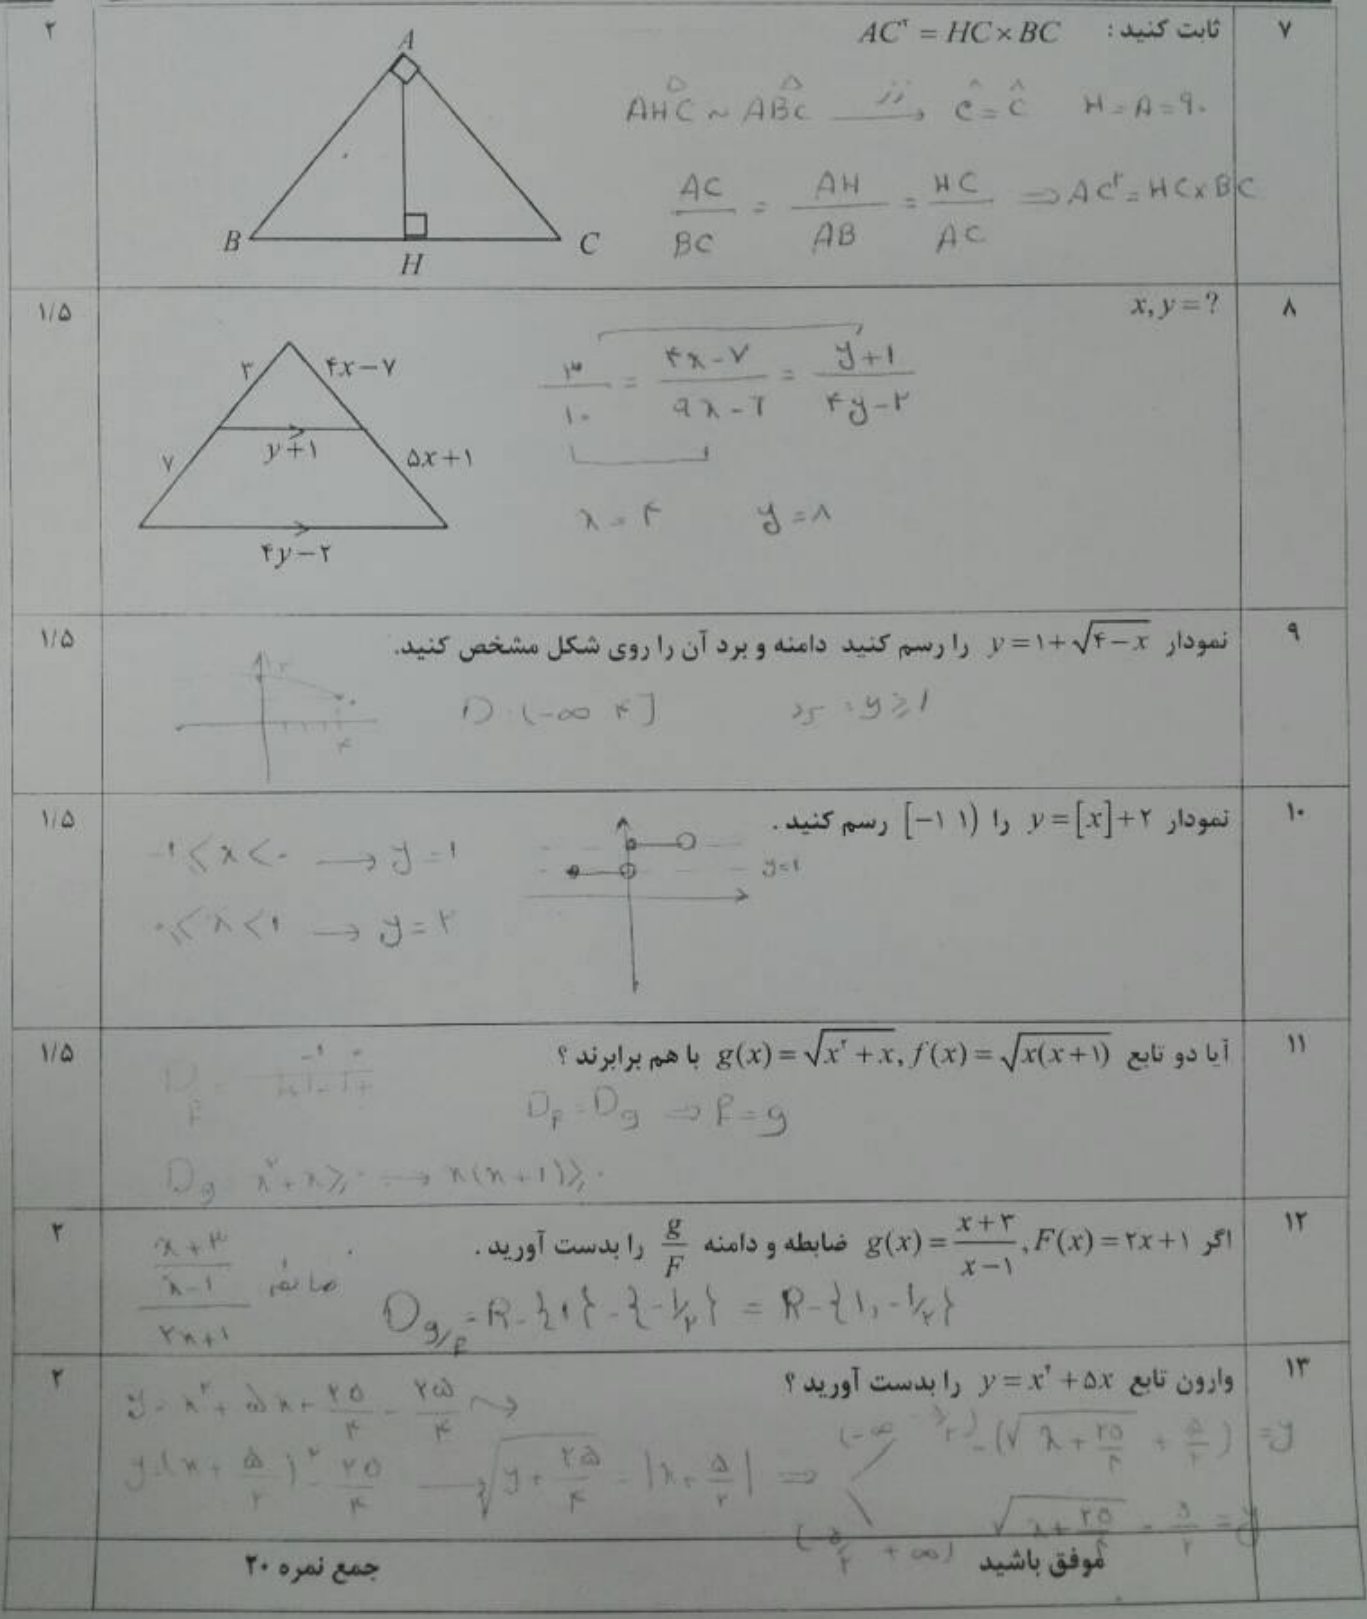 ۷ ثابت کنید : AC² = HC × BC ۲
A
B
H
C
AHC ~ ABC ⟶ زز Ĉ = Ĉ H = A = ۹۰
AC/BC = AH/AB = HC/AC ⇒ AC² = HC × BC
۸ x, y = ? ۱/۵
۳
۴x − ۷
y + ۱
۷
۵x + ۱
۴y − ۲
۳/۱۰ = (۴x − ۷)/(۹x − ۶) = (y + ۱)/(۴y − ۲)
x = ۴ y = ۸
۹ نمودار y = ۱ + √(۴ − x) را رسم کنید دامنه و برد آن را روی شکل مشخص کنید. ۱/۵
۳
۴
D : (−∞ ۴]
برد : y ≥ ۱
۱۰ نمودار y = [x] + ۲ را [−۱ ۱) رسم کنید . ۱/۵
−۱ ≤ x < ۰ ⟶ y = ۱
y = ۱
۰ ≤ x < ۱ ⟶ y = ۲
۱۱ آیا دو تابع g(x) = √(x² + x), f(x) = √(x(x + ۱)) با هم برابرند ؟ ۱/۵
D_f = −۱ ۰
D_f = D_g ⇒ f = g
D_g x² + x ≥ ۰ ⟶ x(x + ۱) ≥ ۰
۱۲ اگر g(x) = (x + ۳)/(x − ۱), F(x) = ۲x + ۱ ضابطه و دامنه g/F را بدست آورید . ۲
ضابطه ((x + ۳)/(x − ۱))/(۲x + ۱)
D_g/F = R − {۱} − {−۱/۲} = R − {۱, −۱/۲}
۱۳ وارون تابع y = x² + ۵x را بدست آورید ؟ ۲
y = x² + ۵x + ۲۵/۴ − ۲۵/۴
y = (x + ۵/۲)² − ۲۵/۴ ⟶ √(y + ۲۵/۴) = |x + ۵/۲| ⇒
(−∞ −۵/۲) −(√(x + ۲۵/۴) + ۵/۲) = y
(−۵/۲ +∞) √(x + ۲۵/۴) − ۵/۲ = y
موفق باشید
جمع نمره ۲۰